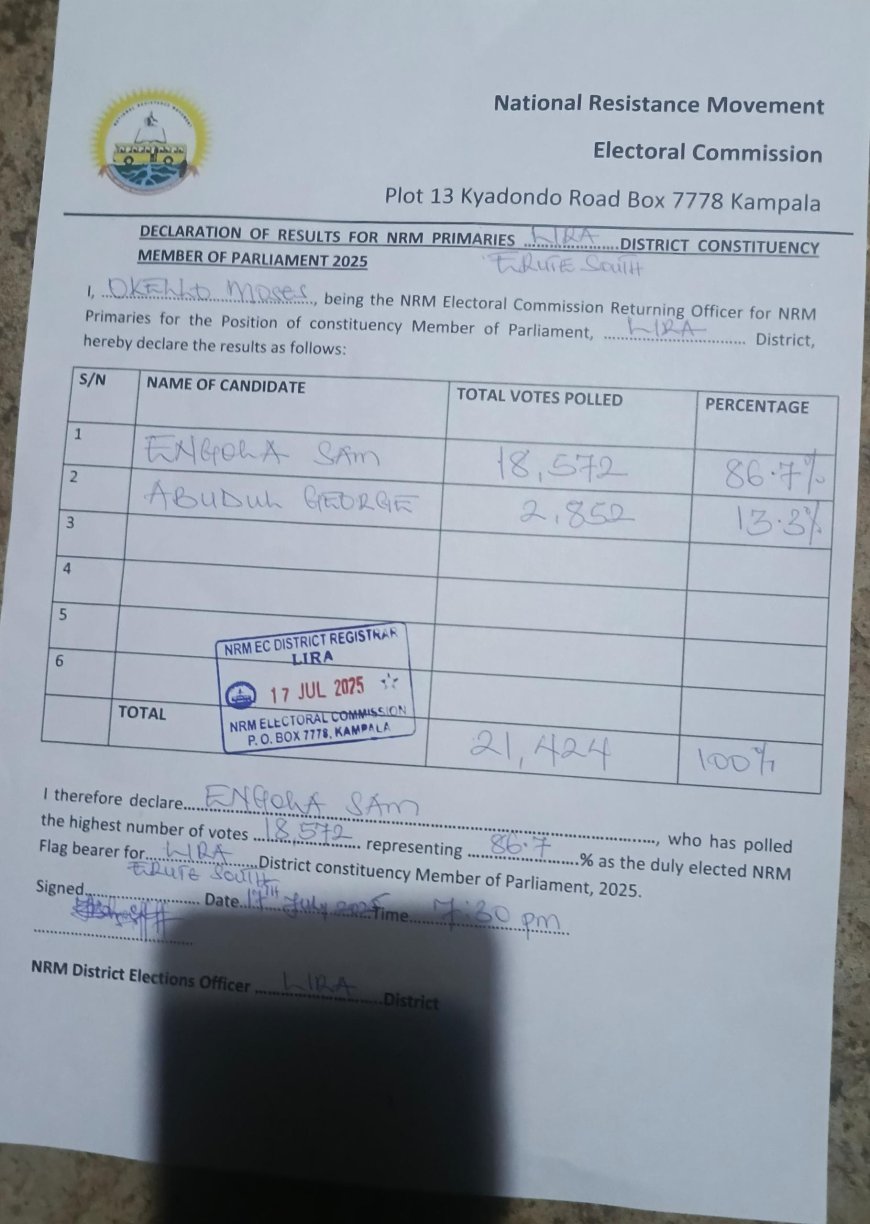 National Resistance Movement
Electoral Commission
Plot 13 Kyadondo Road Box 7778 Kampala
DECLARATION OF RESULTS FOR NRM PRIMARIES LIRA DISTRICT CONSTITUENCY
MEMBER OF PARLIAMENT 2025 ERUTE SOUTH
I, OKELLO MOSES, being the NRM Electoral Commission Returning Officer for NRM
Primaries for the Position of constituency Member of Parliament, LIRA District,
hereby declare the results as follows:
S/N NAME OF CANDIDATE TOTAL VOTES POLLED PERCENTAGE
1 ENGOLA SAM 18,572 86.7%
2 ABUDUL GEORGE 2,852 13.3%
3
4
5
6
TOTAL 21,424 100%
NRM EC DISTRICT REGISTRAR
LIRA
17 JUL 2025
NRM ELECTORAL COMMISSION
P. O. BOX 7778, KAMPALA
I therefore declare ENGOLA SAM, who has polled
the highest number of votes 18,572 representing 86.7 % as the duly elected NRM
Flag bearer for LIRA District constituency Member of Parliament, 2025.
ERUTE SOUTH
Signed Date 17TH July 2025 Time 7:30 pm
NRM District Elections Officer LIRA District